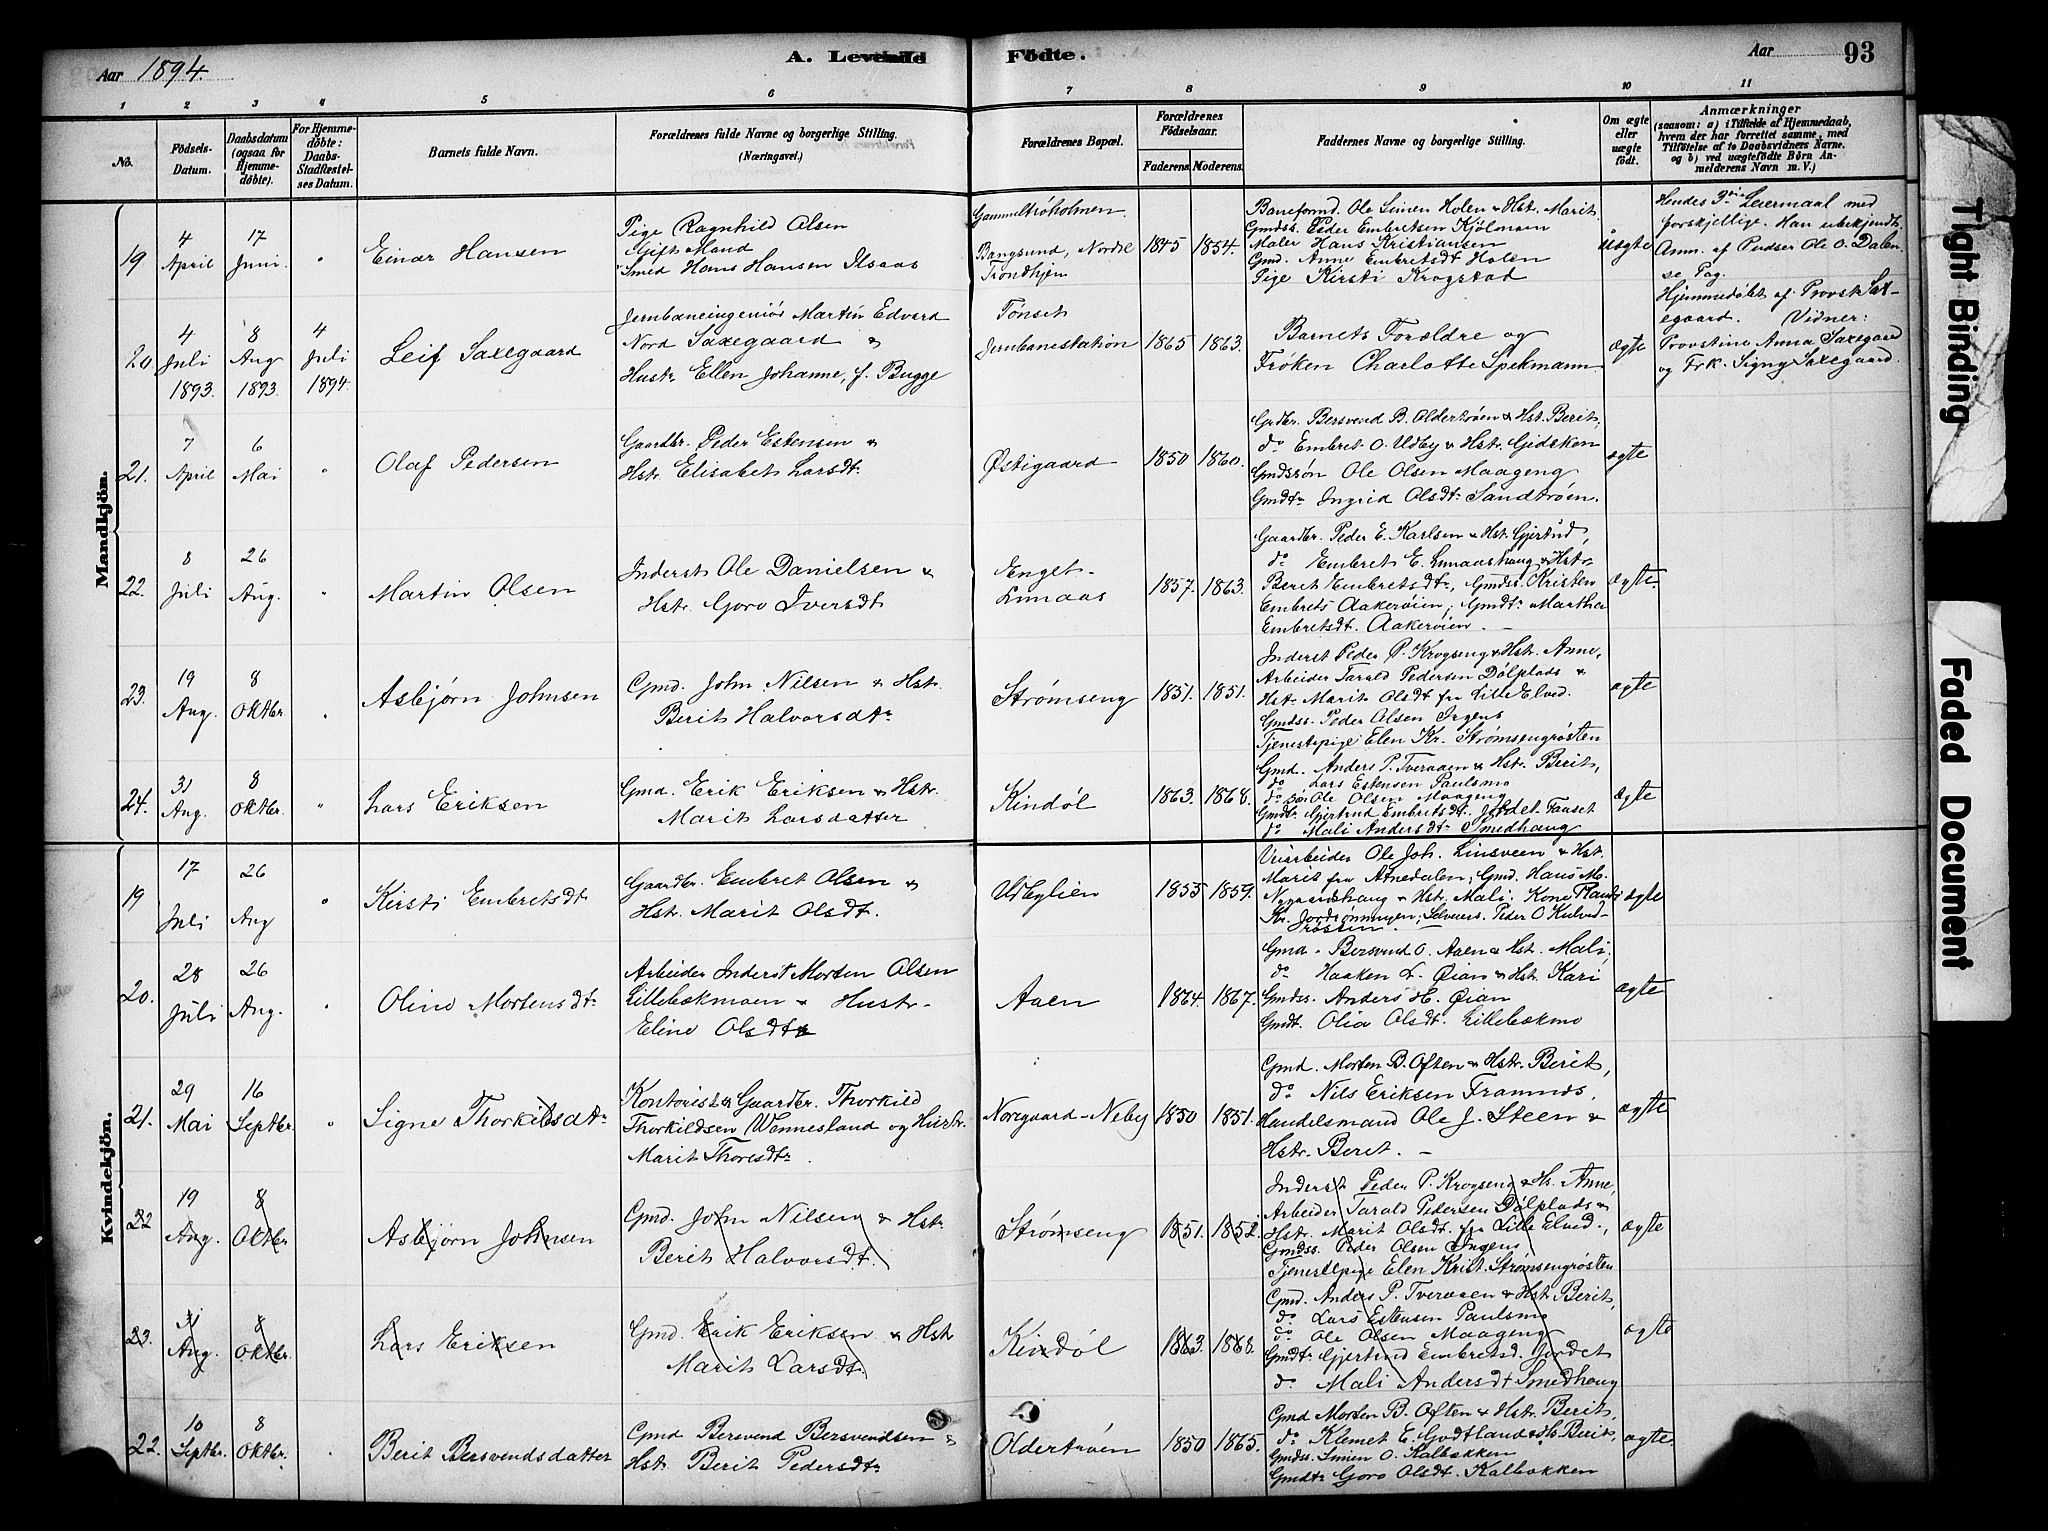 Aar 1894.
A. Levende Födte.
Aar
93
1 2 3 4 5 6 7 8 9 10 11
No.
Födsels-Datum.
Daabsdatum (ogsaa for Hjemmedøbte).
For Hjemmedøbte: Daabs-Stadfæstelses Datum.
Barnets fulde Navn.
Forældrenes fulde Navne og borgerlige Stilling.
(Næringsvei.)
Forældrenes Bopæl.
Forældrenes Födselsaar.
Faderens. Moderens.
Faddernes Navne og borgerlige Stilling.
Om ægte eller uægte født.
Anmærkninger
(saasom: a) i Tilfælde af Hjemmedaab,
hvem der har forrettet samme, med
Tilföielse af to Daabsvidners Navne.
og b) ved uægtefödte Börn An-
melderens Navn m. V.)
Mandkjön.
19
4 April
17 Juni.
"
Einar Hansen
Pige Ragnhild Olsen
Gift Mand
Smed Hans Hansen Ilsaas
Gammeltrøholmen
Bangsund, Nordre
Trondhjem
1845 1854.
Baneformd. Ole Simen Holen & Hst. Marit
Gmdss. Peder Embretsen Kjølmoen
Maler Hans Kristiansen
Gmd. Anne Embretsdt Holen
Pige Kirsti Krogstad
uægte
Hendes 3die Leiermaal med
forskjellige. Han ubekjendt
Anm. af Pudser Ole O. Dalen
se Pag.
20
4 Juli 1893.
8 Aug 1893.
4 Juli 1894.
Leif Saxegaard
Jernbaneingeniør Martin Edvard
Nord Saxegaard &
Hustr. Ellen Johanne, f. Bugge
Tønset
Jernbanestation
1865 1863.
Barnets Forældre og
Frøken Charlotte Spekmann
ægte
Hjemmedøbt af Provst Sax-
egaard. Vidner:
Provstine Anna Saxegaard
og Frk. Signy Saxegaard.
21.
7 April
6 Mai
"
Olaf Pedersen
Gaardbr. Peder Estensen &
Hstr. Elisabet Larsdt.
Østigaard
1850 1860.
Grdbr. Bersvend B. Oldertrøen & Hst. Berit,
do Embret O. Udby & Hstr. Gidsken
Gmdssøn Ole Olsen Maageng
Gmdtr Ingrid Olsdtr Sandtrøen.
ægte
22.
8 Juli
26 Aug.
"
Martin Olsen
Inderst Ole Danielsen &
Hstr. Goro Iversdt
Enget-
Lunaas
1857. 1863.
Gaardbr. Peder E. Karlsen & Hst. Gjertrud,
do Embret E. Lunaashaug & Hstr
Berit Embretsdtr, Gmdss. Kristen
Embrets Aakerøien, Gmdtr Martha
Embretsdt. Aakerøien. –
ægte.
23.
19 Aug.
8 Oktbr.
"
Asbjørn Johnsen
Gmd. John Nilsen & Hst.
Berit Halvorsdtr
Strømseng
1851. 1851.
Inderst Peder P. Krogseng & Hst. Anne,
Arbeider Tarald Pedersen Dølplads &
Hstr Marit Olsdt fra Lille Elved.
Gmdss. Peder Olsen Ingens
Tjenestepige Elen Kr. Strømsengrøsten
ægte
24.
31 Aug.
8 Oktbr.
"
Lars Eriksen
Gmd. Erik Eriksen & Hstr.
Marit Larsdatter
Kindøl
1863. 1868.
Gmd. Anders P. Tveraaen & Hst. Berit,
do Lars Estensen Paulsmo
do søn Ole Olsen Maageng
Gmdtr Gjertrud Embretsdt. Jordet Faaset
do Mali Andersdtr Smedhaug
ægte
Kvindekjön.
19
17 Juli
26 Aug
"
Kirsti Embretsdt
Gaardbr. Embret Olsen &
Hst. Marit Olsdt.
Udbylien
1855 1859.
Veiarbeider Ole Joh. Linsveen & Hst.
Marit fra Atnedalen, Gmd. Hans M.
Nygaardshaug & Hstr. Mali, Kone
ægte
20.
28 Juli
26 Aug.
"
Oline Mortensdtr
Arbeider Inderst Morten Olsen
Lillebækmoen & Hustr.
Eline Olsdtr
Aaen
1864. 1867.
Gmd. Bersvend O. Aaen & Hst. Mali,
do Haaken L. Øian & Hst. Kari
Gmdss. Anders H. Øian
Gmdt. Olia Olsdt. Lillebækmo
ægte
21.
29 Mai
16 Septbr.
"
Signe Thorkildsdtr
Kontorist & Gaardbr. Thorkild
Thorkildsen Wennesland og Hustr.
Marit Thoresdtr
Noregaard-Neby
1850 1851.
Gmd. Morten B. Often & Hstr. Berit,
do Nils Eriksen Framnds,
Handelsmand Ole J. Steen &
Hstr. Beret. –
ægte
22
19 Aug.
8 Oktbr
Asbjørn Johnsen
Gmd. John Nilsen & Hst.
Berit Halvorsdt.
Strømseng
1851. 1852.
Inderst Peder P. Krogseng & Hs. Anne,
Arbeider Tarald Pedersen Dølplads &
Hstr. Marit Olsdt. fra Lille Elved.,
Gmdss. Peder Olsen Ingens
Tjenestepige Elen Krist. Strømsengrøsten
ægte
23.
31 Aug.
8 Oktbr.
Lars Eriksen
Gmd. Erik Eriksen & Hst
Marit Larsdt.
Kindøl
1863. 1868.
Gmd. Anders P. Tveraaen & Hst. Berit,
do Lars Estensen Paulsmo
do Ole Olsen Maageng
Gmdtr Gjertrud Embretsd. Jordet
do Mali Andersdt Smedhaug
ægte
22.
10 Septbr.
8 Oktbr.
"
Berit Bersvendsdatter
Gmd Bersvend Bersvendsen &
Hst. Berit Pedersdtr
Oldertrøen
1850 1865.
Gmd Morten B. Often & Hstr. Berit,
do Klemet E. Godtland & Hs. Berit,
Gmdss. Simen O. Kalbækken
Gmdtr Goro Olsdt. Kalbækken
ægte.
Tight Binding
Faded Document